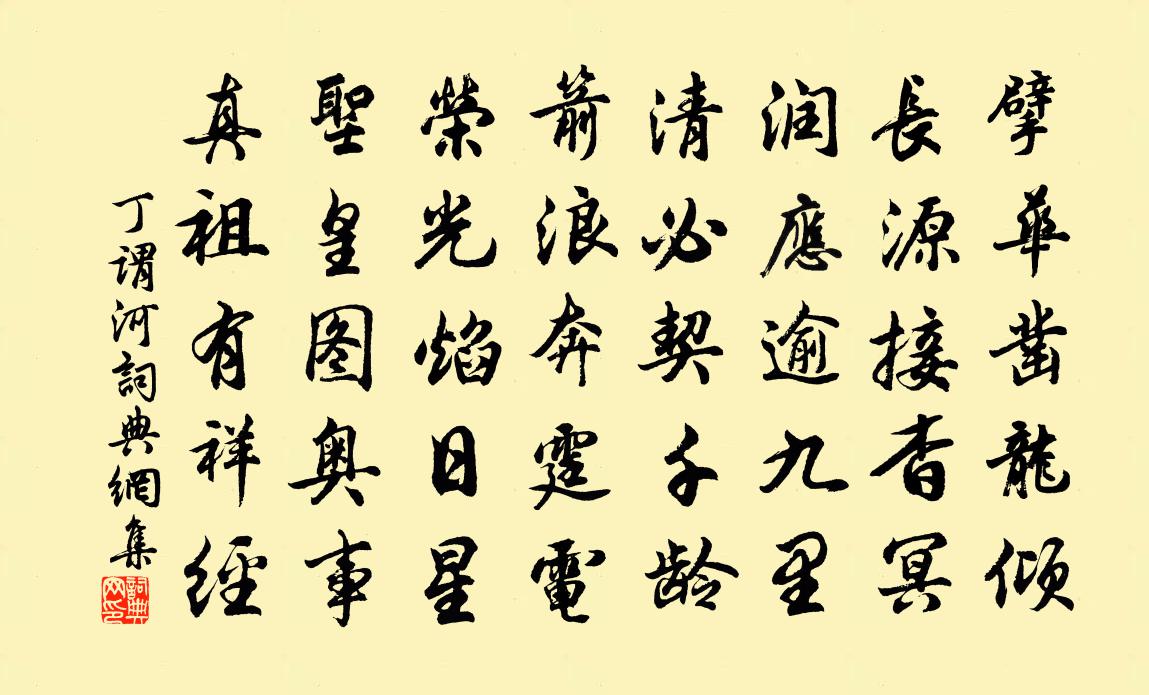 擘華凿龍傾
長源接杳冥
润應逾九里
清必契千龄
箭浪奔霆電
榮光焰日星
聖皇图奥事
真祖有祥經
丁謂河詞典網集
詞典网印